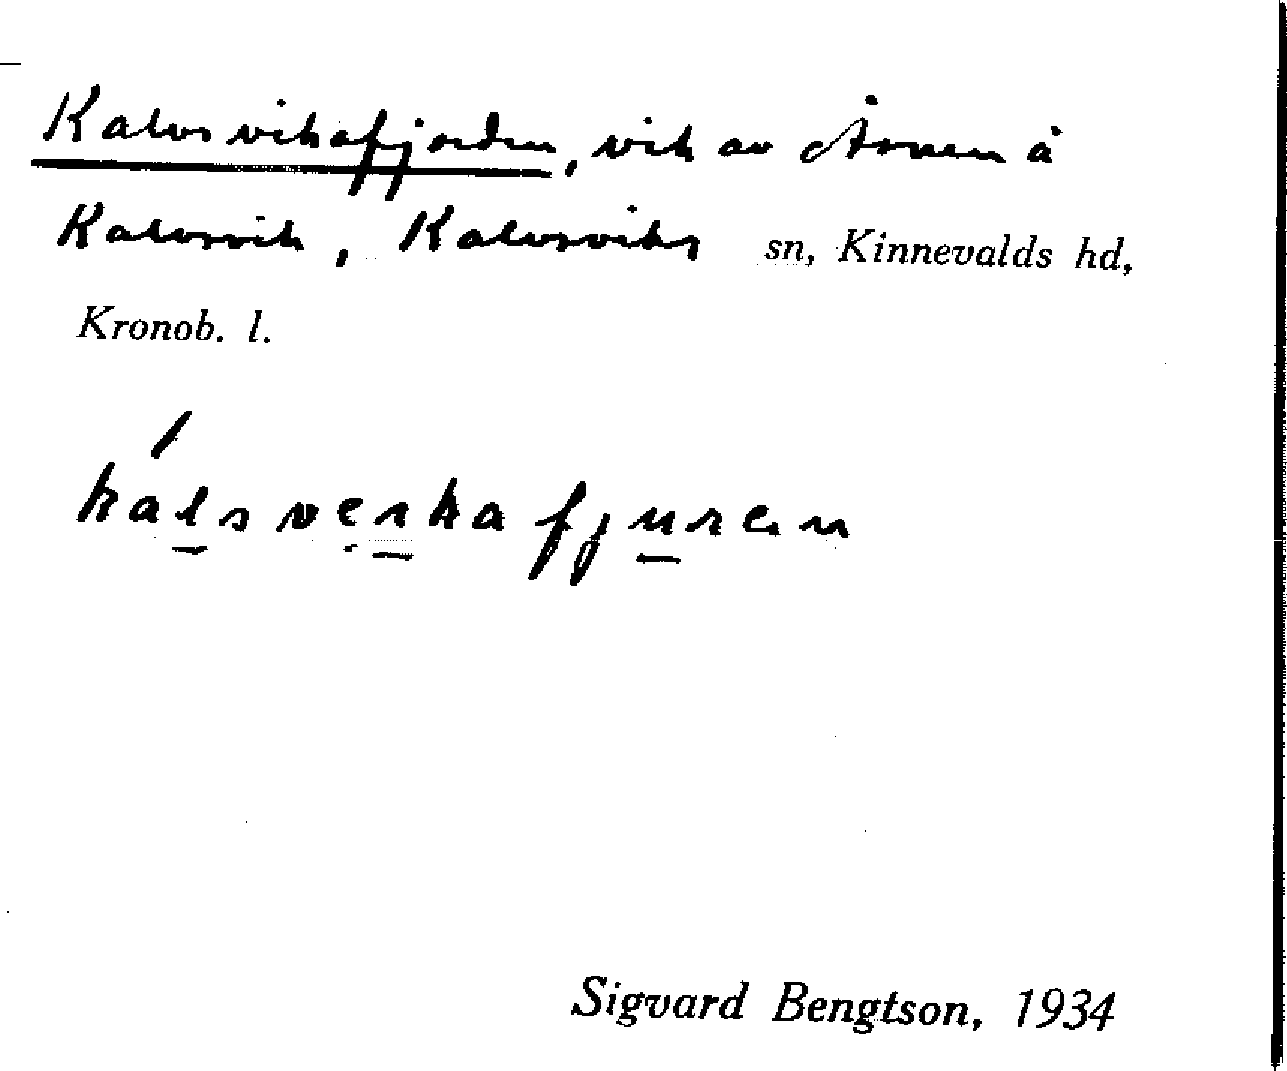 Kalvsviksfjorden, vik av Åsnen å
Kalvsvik, Kalvsviks sn, Kinnevalds hd,
Kronob. l.
Sigvard Bengtson, 1934